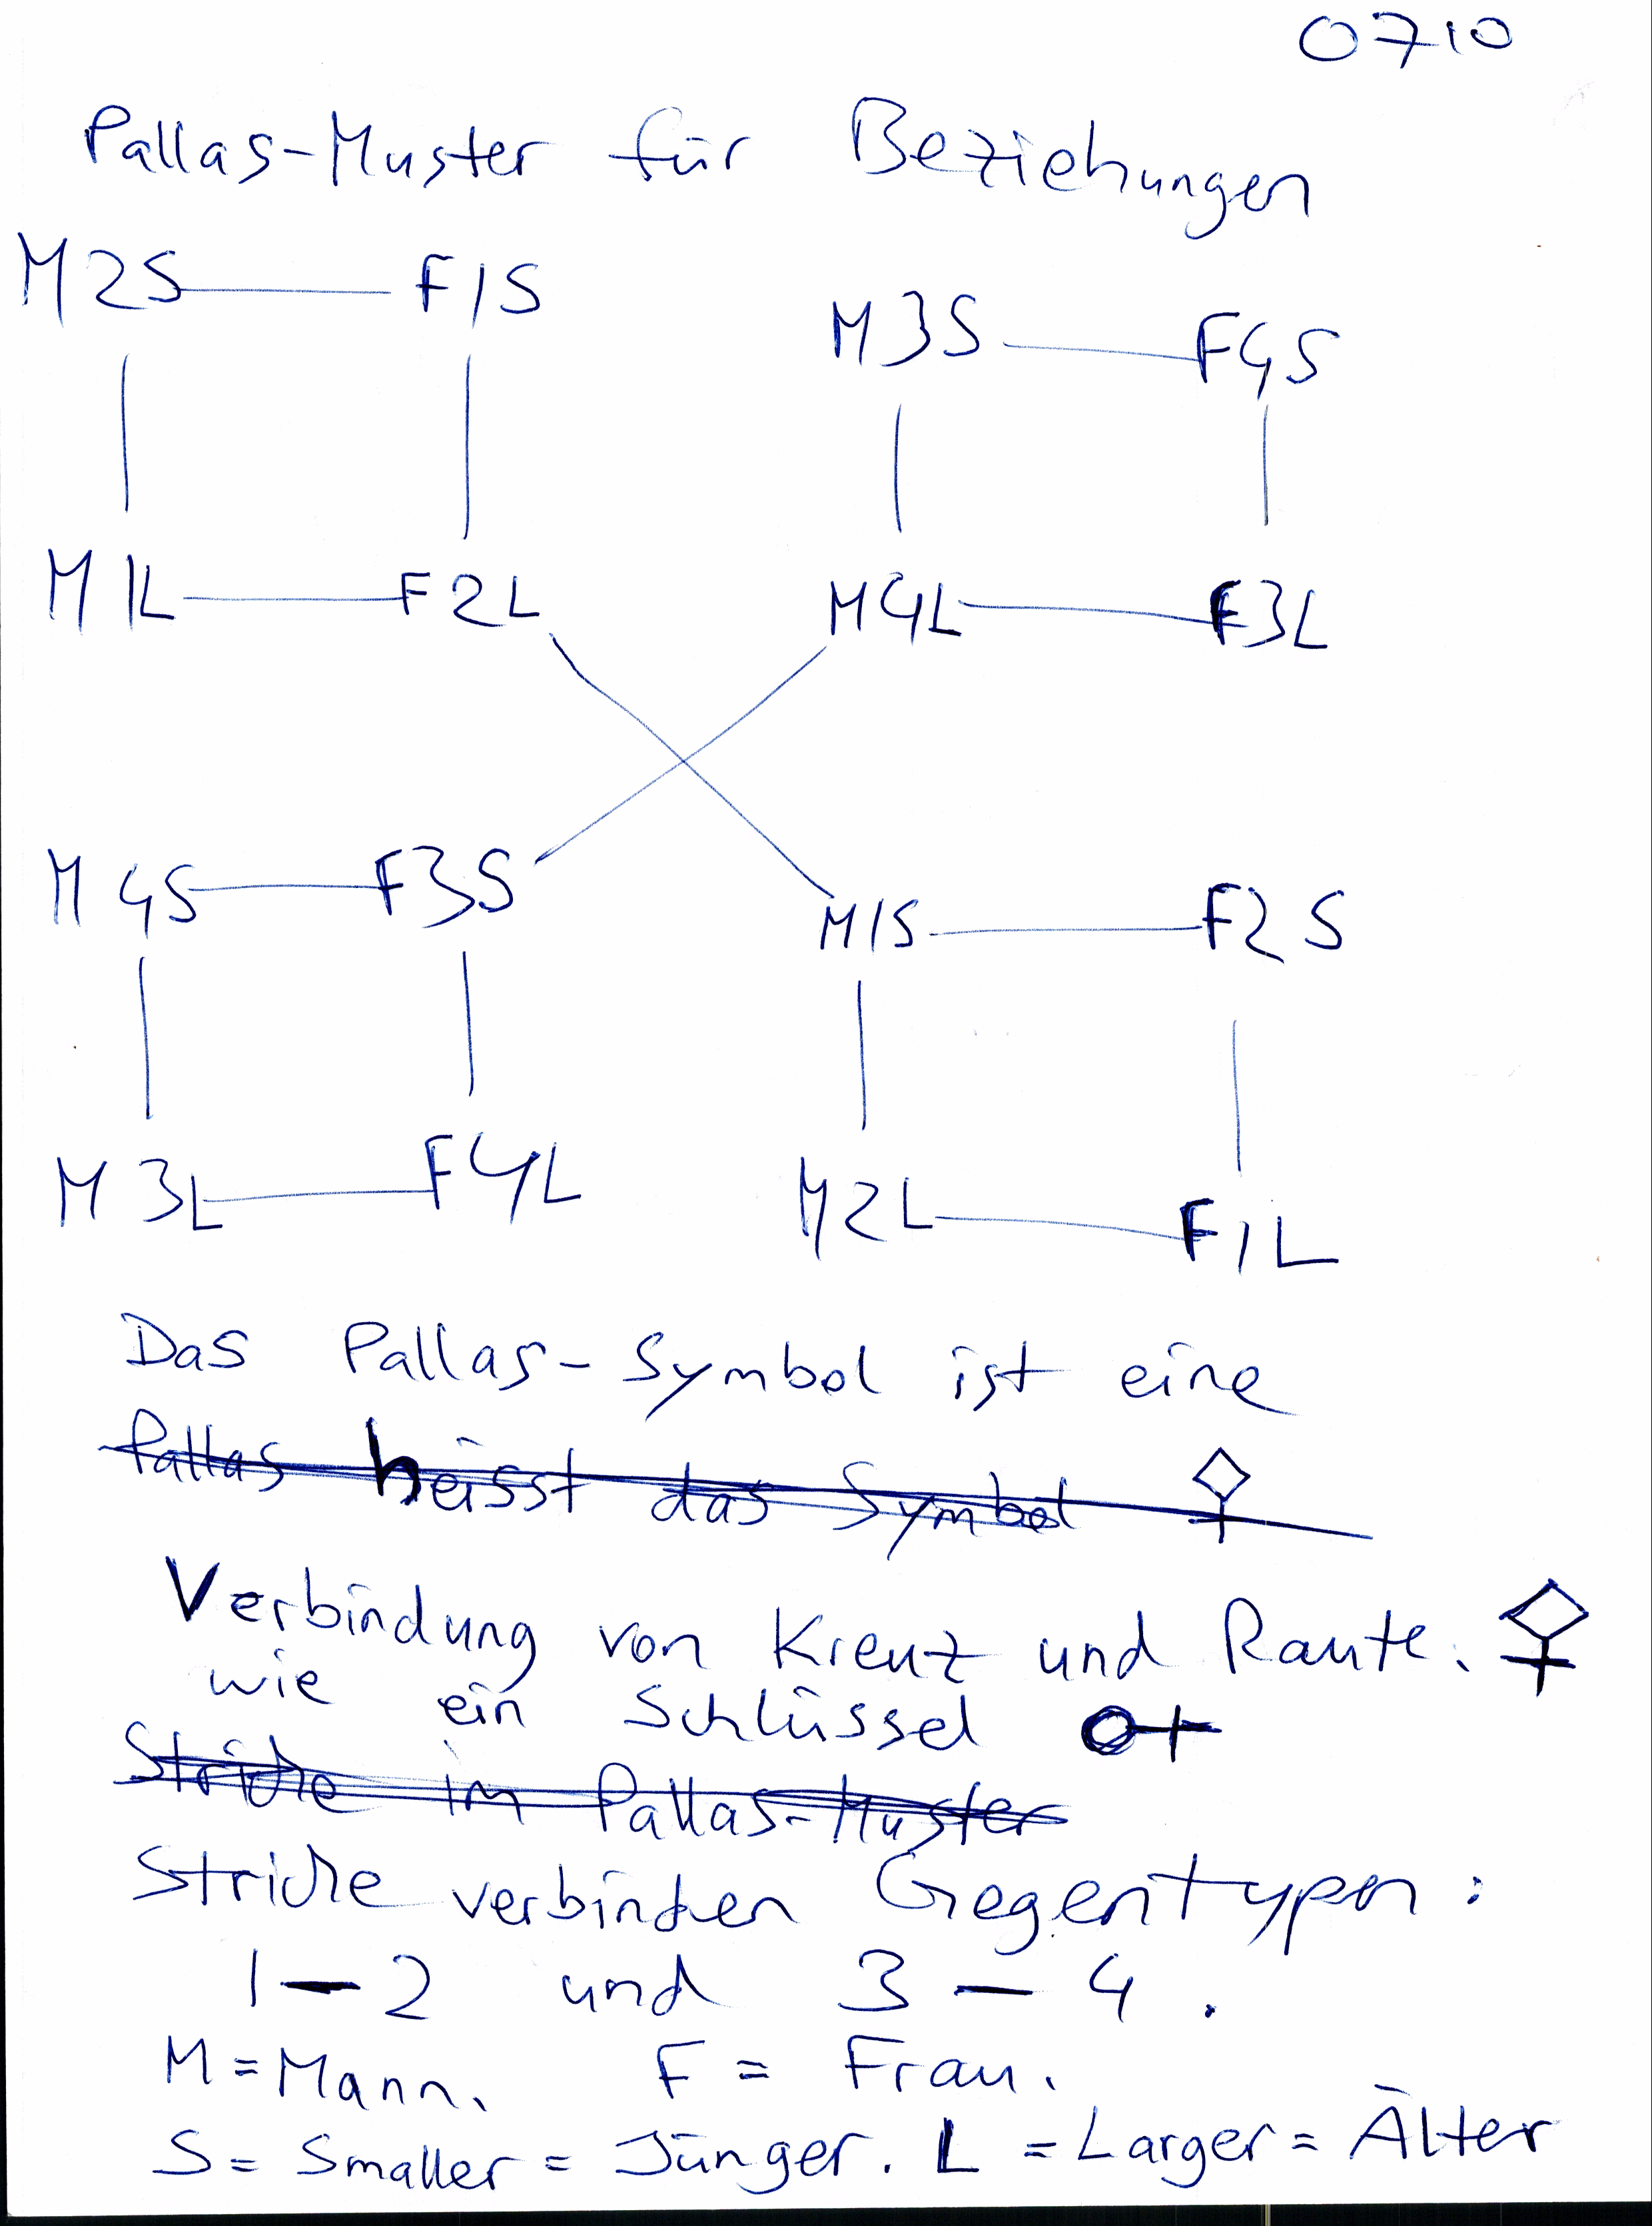 0710
Pallas-Muster für Beziehungen
M2S F1S M3S F4S
M1L F2L M4L F3L
M4S F3S M1S F2S
M3L F4L M2L F1L
Das Pallas-Symbol ist eine
Pallas heisst das Symbol
Verbindung von Kreuz und Raute.
wie ein Schlüssel
Striche im Pallas-Muster
Striche verbinden Gegentypen:
1 — 2 und 3 — 4.
M = Mann. F = Frau.
S = Smaller = Jünger. L = Larger = Älter